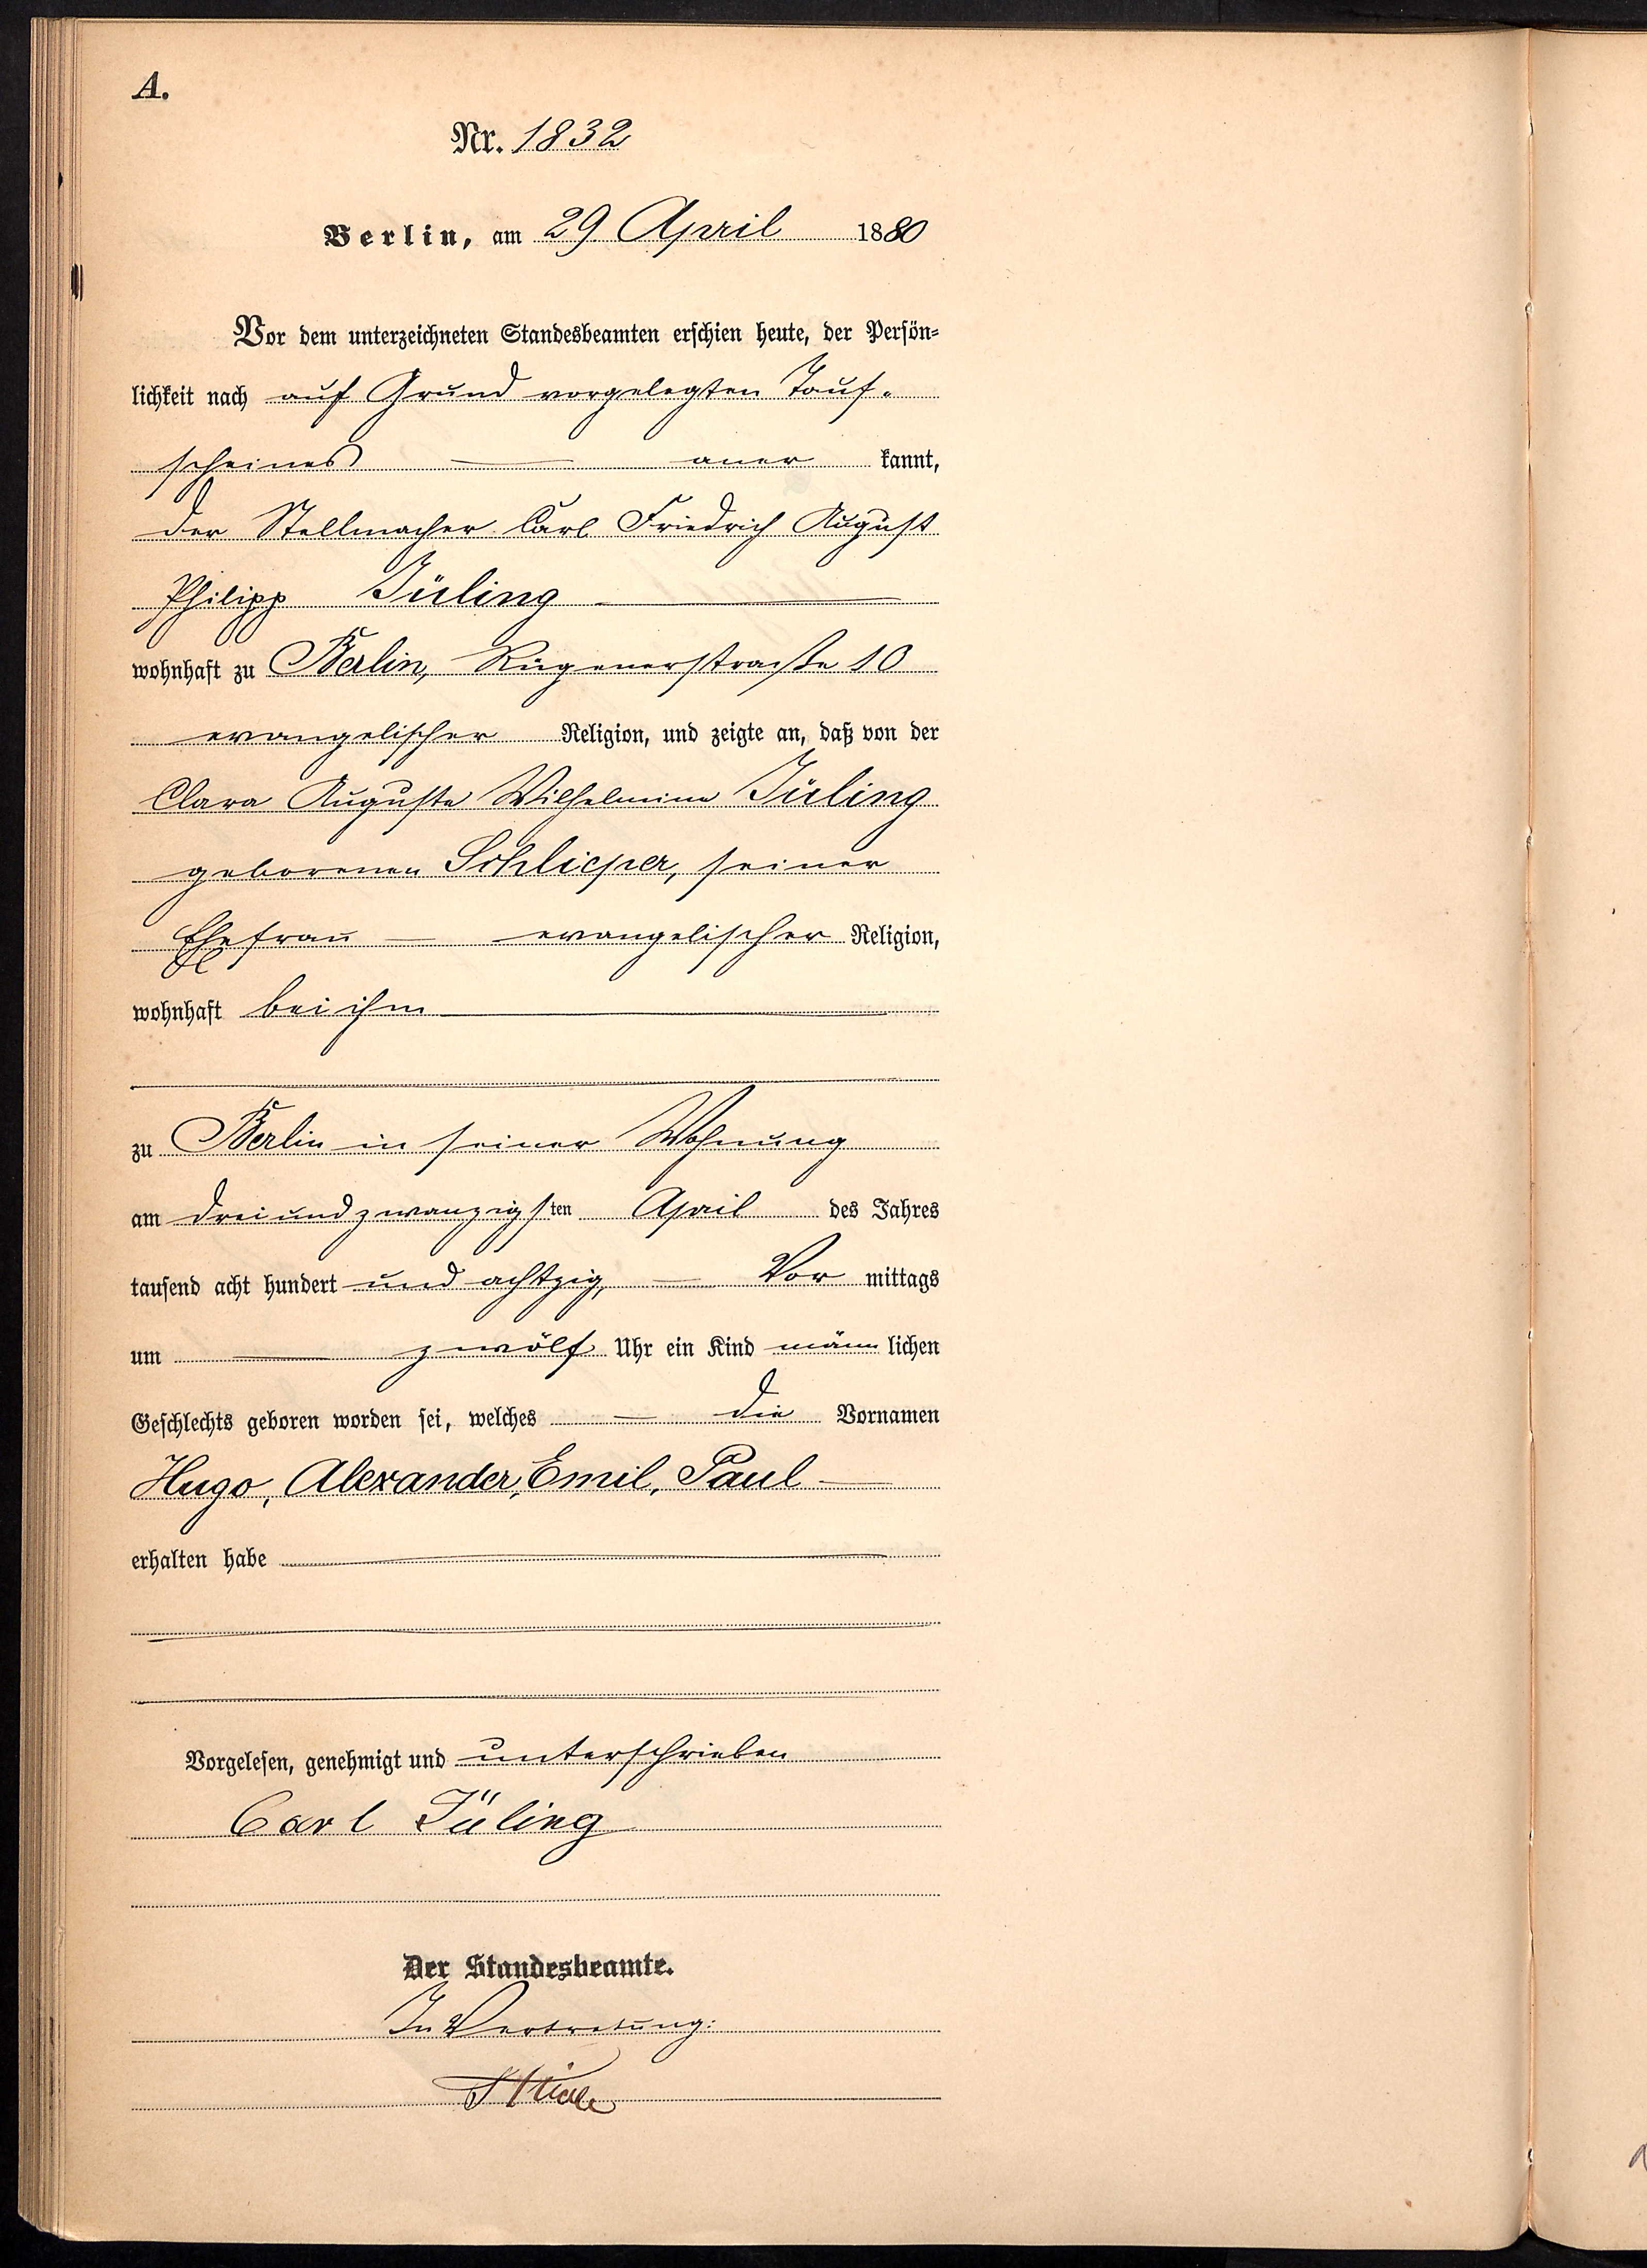 A.
Nr. 1832
Berlin, am 29. April 1880
Vor dem unterzeichneten Standesbeamten erschien heute, der Persön-
lichkeit nach auf Grund vorgelegten Tauf-
scheines aner kannt,
der Stellmacher Carl Friedrich August
Philipp Jüling
wohnhaft zu Berlin, Rügenerstraße 10
evangelischer Religion, und zeigte an, daß von der
Clara Auguste Wilhelmine Jüling
geborenen Schlieper, seiner
Ehefrau evangelischer Religion,
wohnhaft bei ihm
zu Berlin in seiner Wohnung
am dreiundzwanzigsten April des Jahres
tausend acht hundert und achtzig, Vor mittags
um zwölf Uhr ein Kind männ lichen
Geschlechts geboren worden sei, welches die Vornamen
Hugo, Alexander, Emil, Paul
erhalten habe
Vorgelesen, genehmigt und unterschrieben
Carl Jüling
Der Standesbeamte.
In Vertretung: